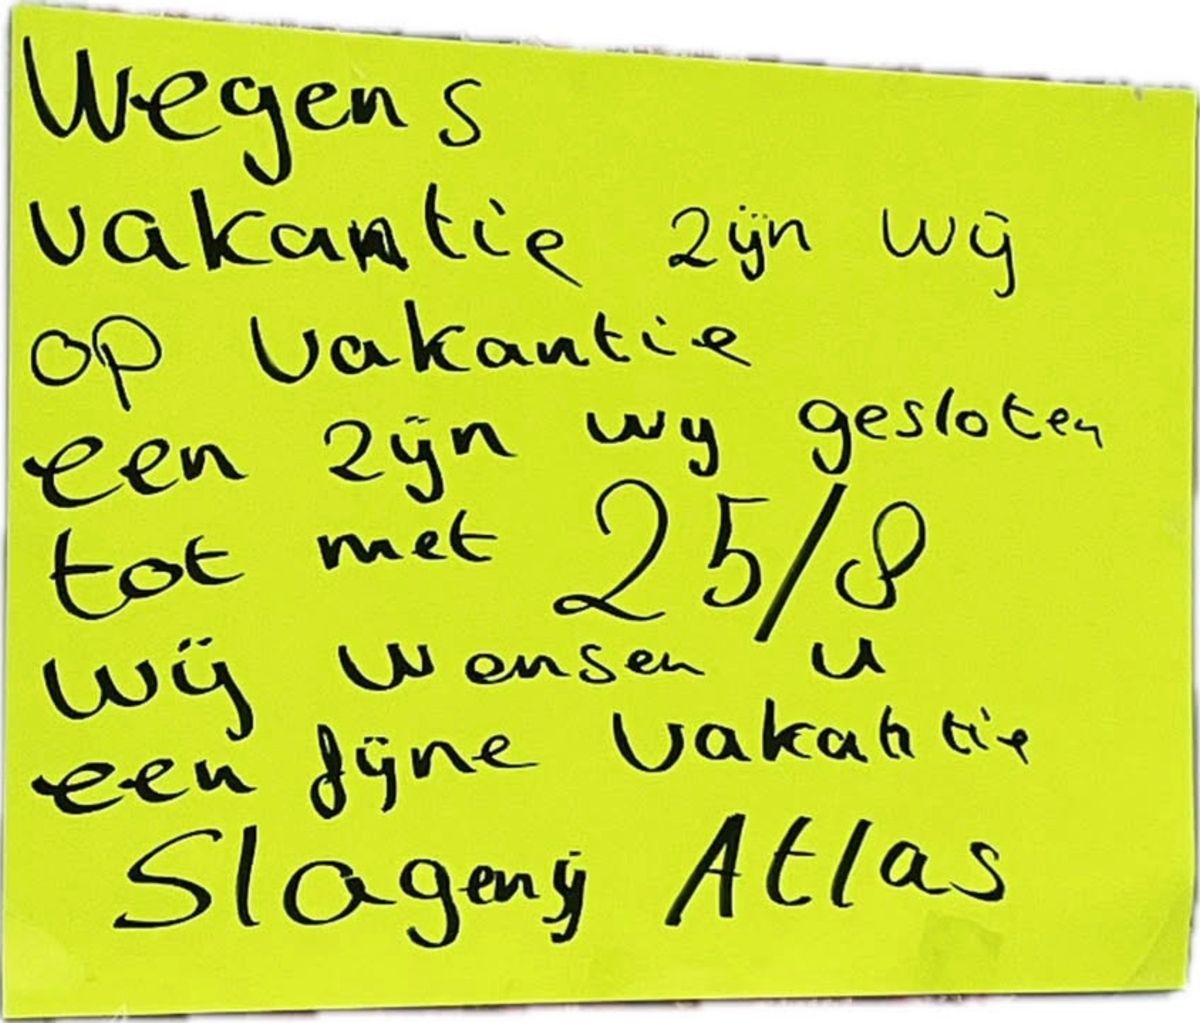 Wegens
vakantie zijn wij
op vakantie
een zijn wij gesloten
tot met 25/8
wij wensen u
een fijne vakantie
Slagerij Atlas